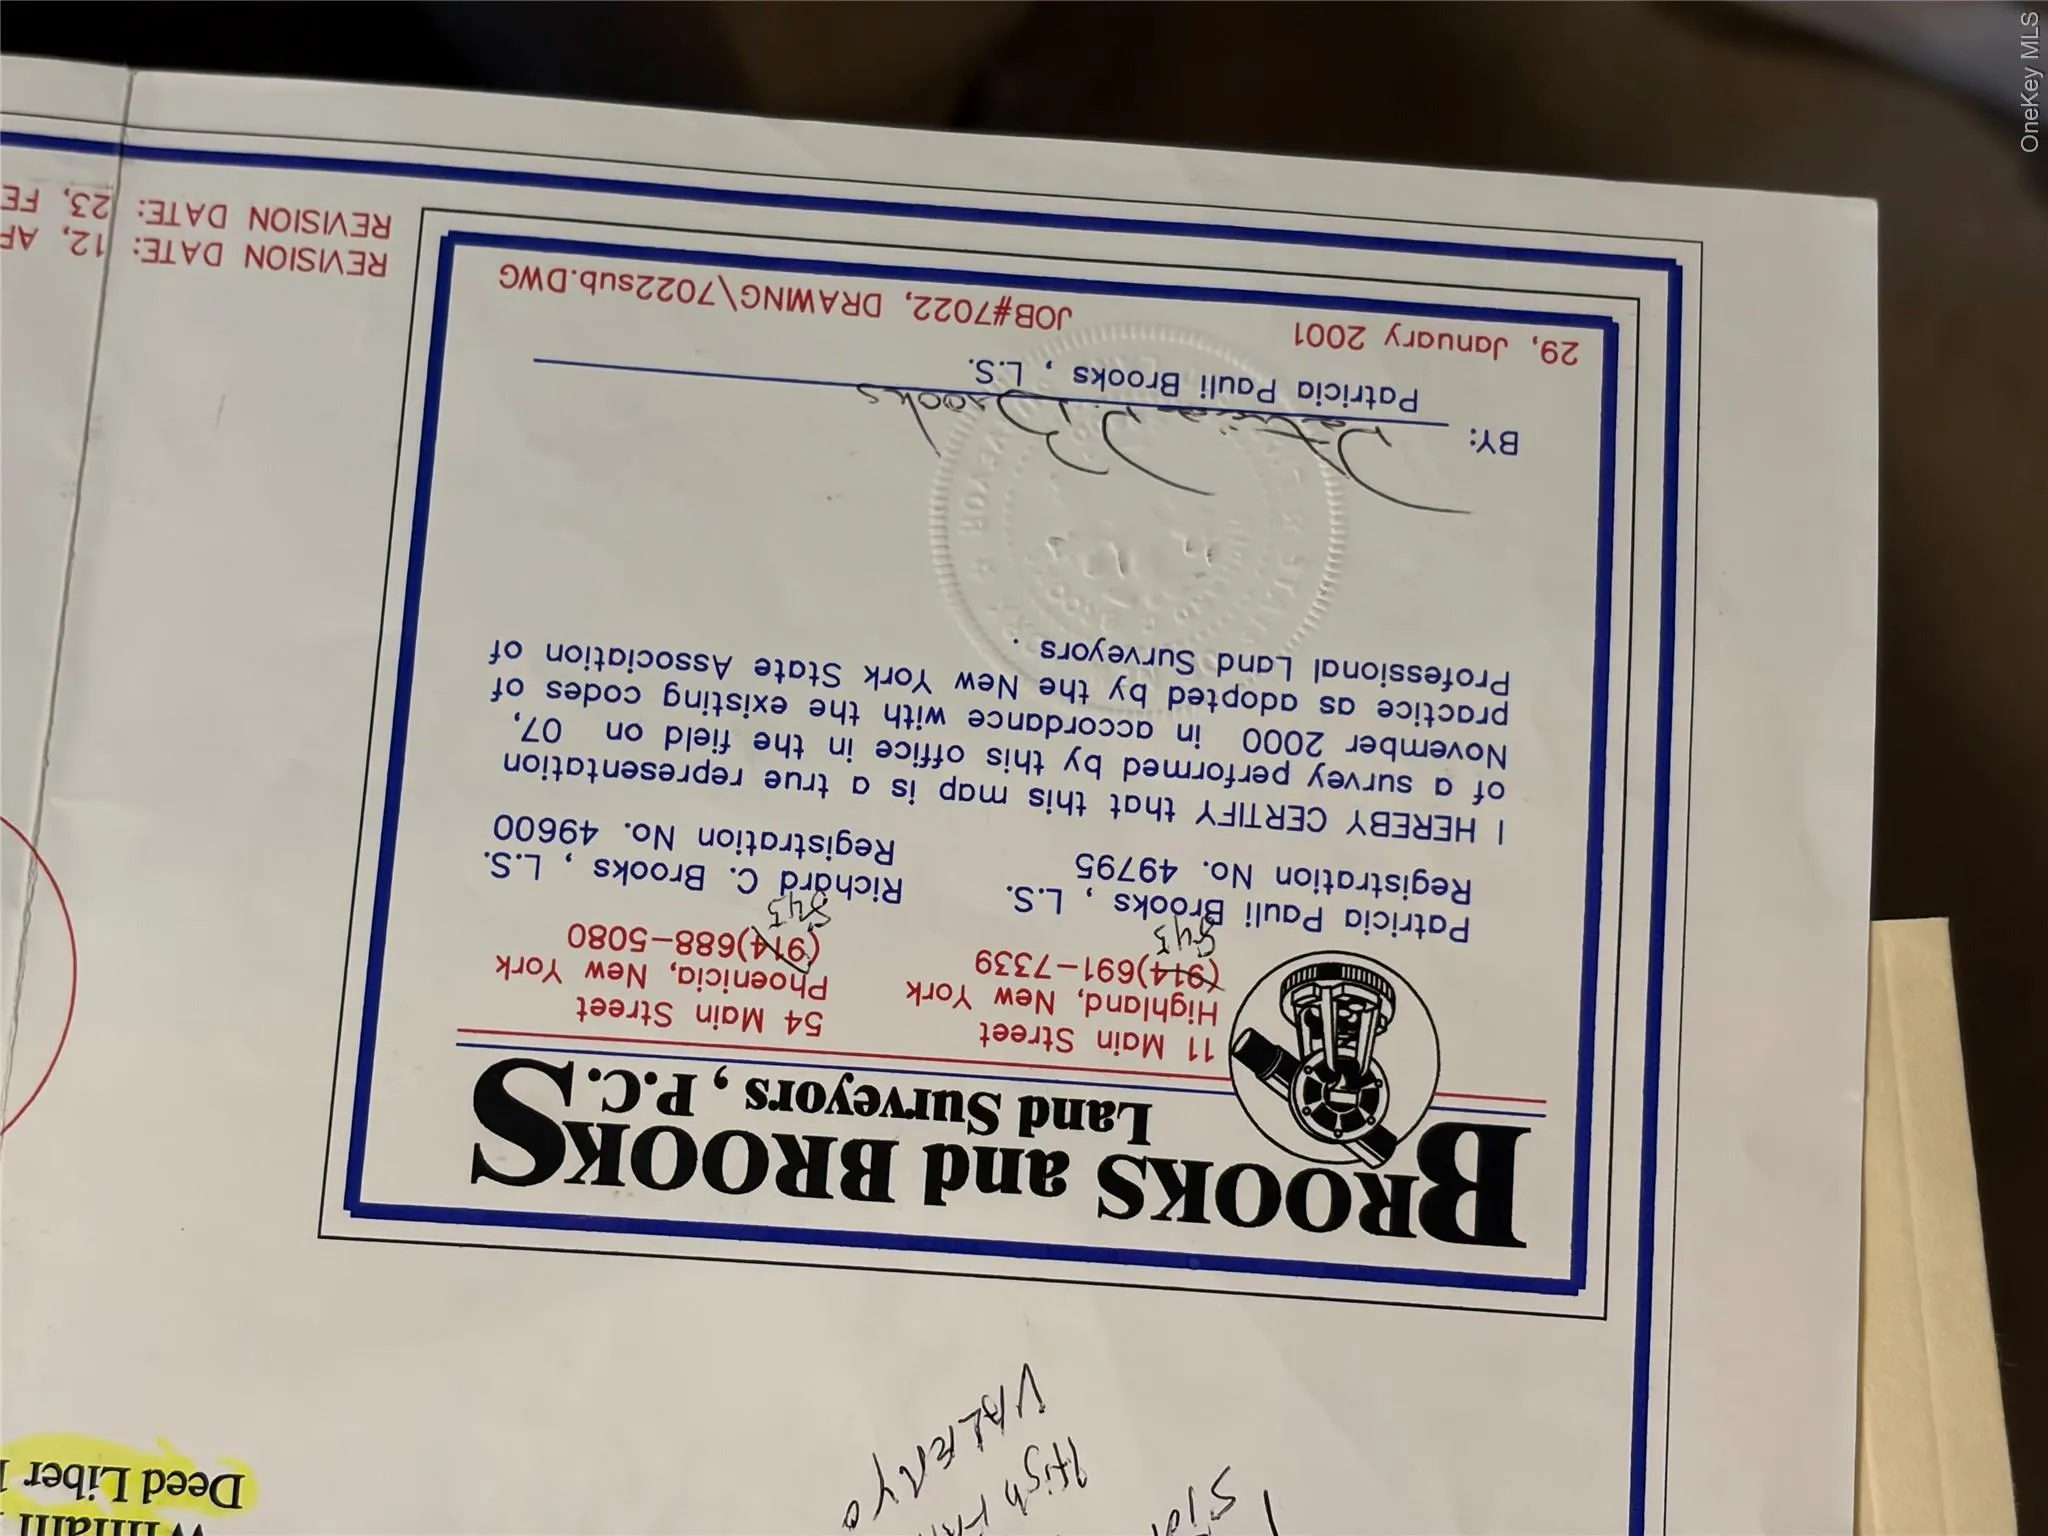 Deed Liber
VALERYO
High
BROOKS and BROOKS
Land Surveyors, P.C.
11 Main Street
Highland, New York
(914)691-7339
845
54 Main Street
Phoenicia, New York
(914)688-5080
845
Patricia Pauli Brooks , L.S.
Registration No. 49795
Richard C. Brooks , L.S.
Registration No. 49600
I HEREBY CERTIFY that this map is a true representation
of a survey performed by this office in the field on 07,
November 2000 in accordance with the existing codes of
practice as adopted by the New York State Association of
Professional Land Surveyors .
BY: Patricia P. Brooks
Patricia Pauli Brooks , L.S.
29, January 2001
JOB#7022, DRAWING\7022sub.DWG
REVISION DATE: 12,
REVISION DATE: 23,
OneKey MLS